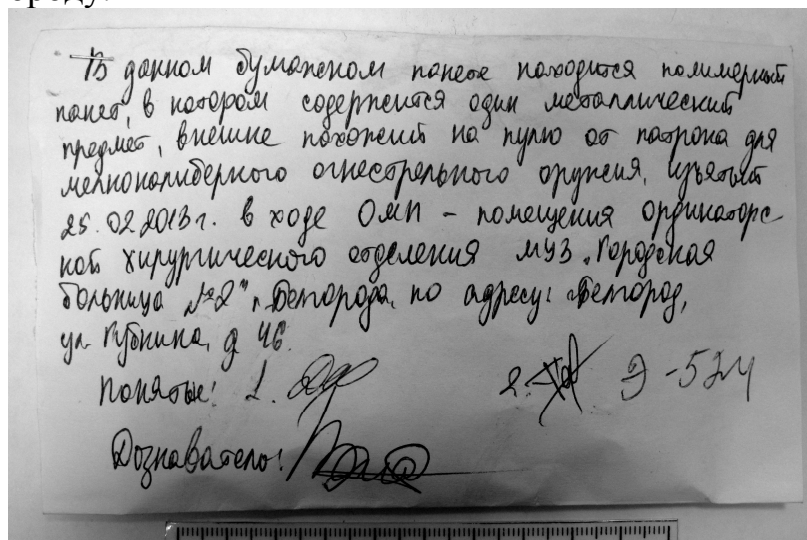 В данном бумажном пакете находится полимерный
пакет, в котором содержится один металлический
предмет, внешне похожий на пулю от патрона для
мелкокалиберного огнестрельного оружия, изъятый
25.02.2013 г. в ходе ОМП - помещения ординаторс
кой хирургического отделения МУЗ „Городская
больница №2" г. Белгорода, по адресу: г. Белгород,
ул. Губкина, д 46.
Понятые: 1. 2. Э-574
Дознаватель: